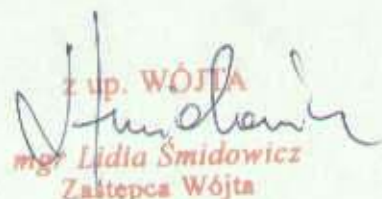 z up. WÓJTA
mgr Lidia Śmidowicz
Zastępca Wójta